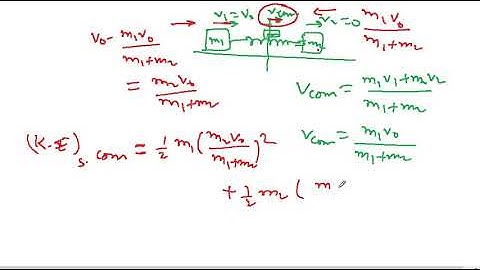 v₁=v₀ v_com v₂=0
m₁ m₂
v₀ - m₁v₀/(m₁+m₂)
= m₂v₀/(m₁+m₂)
m₁v₀/(m₁+m₂)
V_com = (m₁v₁+m₂v₂)/(m₁+m₂)
v_com = m₁v₀/(m₁+m₂)
(K.E)_s.com = ½ m₁(m₂v₀/(m₁+m₂))²
+ ½ m₂ ( m